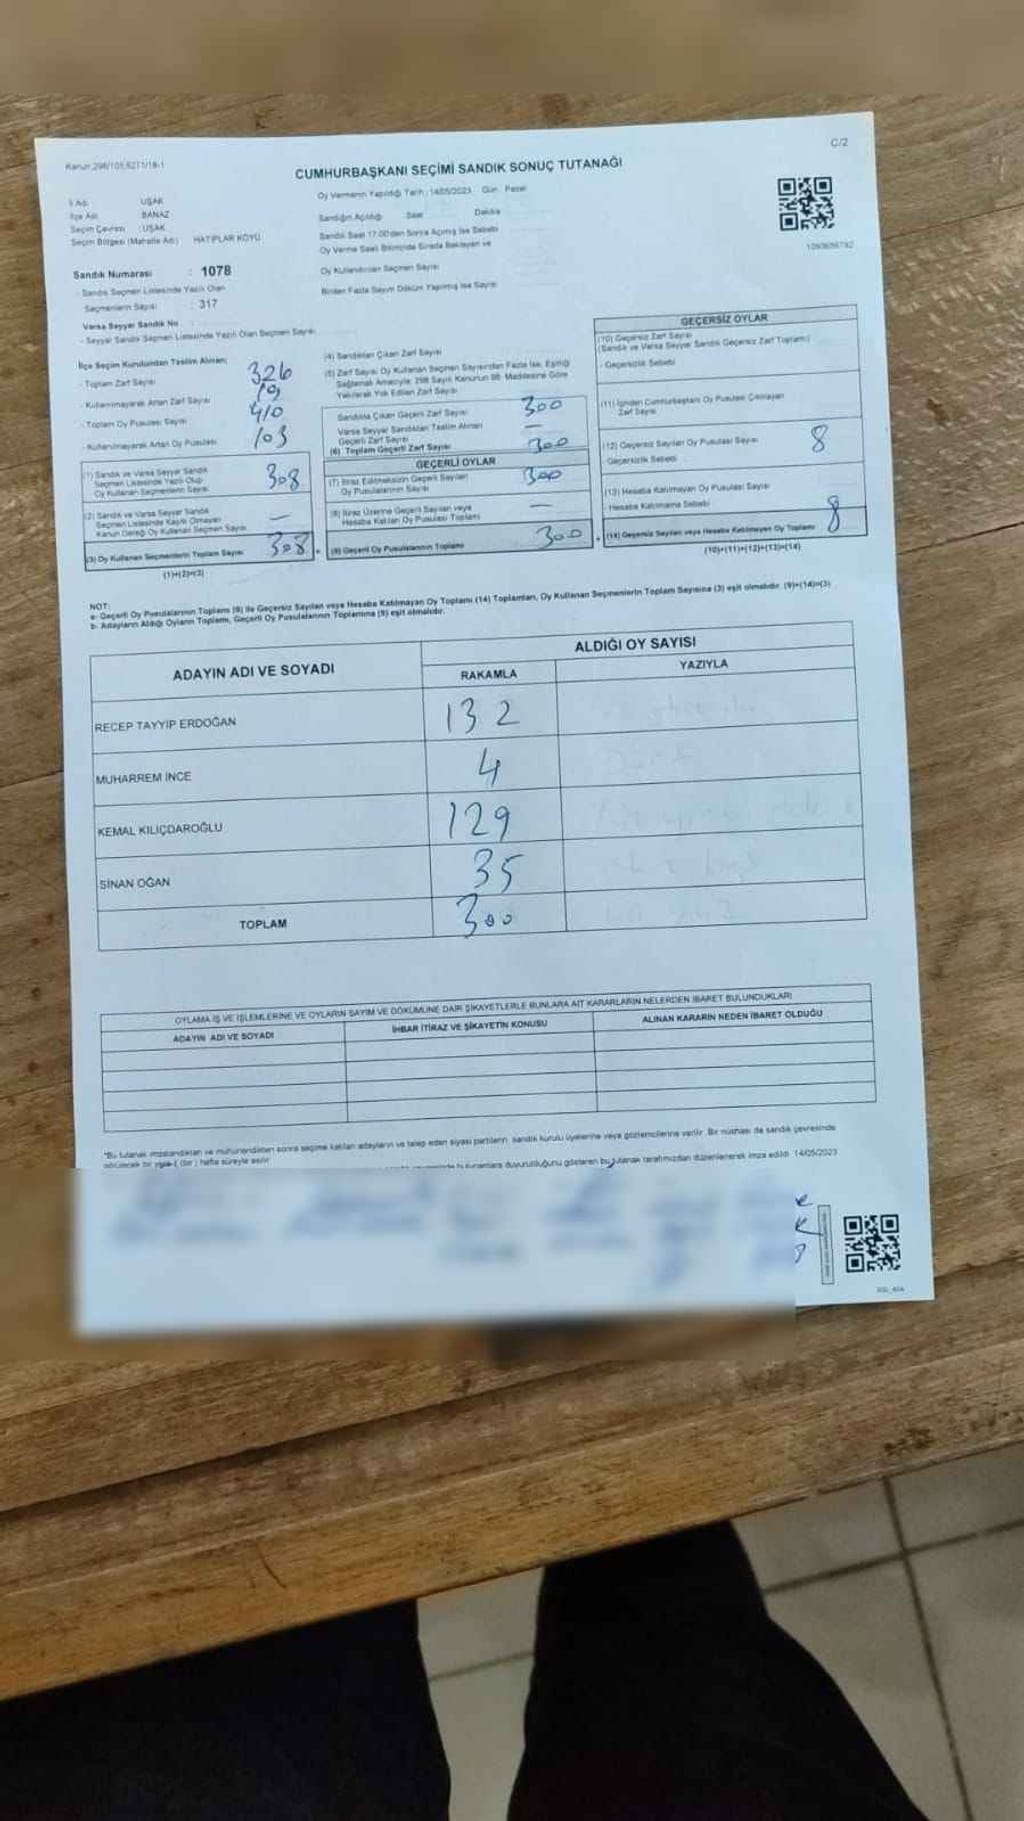 C/2
Kanun:298/105,6271/18-1
CUMHURBAŞKANI SEÇİMİ SANDIK SONUÇ TUTANAĞI
Oy Vermenin Yapıldığı Tarih : 14/05/2023 Gün : Pazar
İl Adı : UŞAK
İlçe Adı : BANAZ
Seçim Çevresi : UŞAK
Seçim Bölgesi (Mahalle Adı) : HATIPLAR KÖYÜ
Sandığın Açıldığı Saat Dakika
Sandık Saat 17:00'den Sonra Açılmış İse Sebebi
Oy Verme Saati Bitiminde Sırada Bekleyen ve
Oy Kullandırılan Seçmen Sayısı
Birden Fazla Sayım Döküm Yapılmış İse Sayısı
Sandık Numarası : 1078
- Sandık Seçmen Listesinde Yazılı Olan
Seçmenlerin Sayısı : 317
Varsa Seyyar Sandık No :
- Seyyar Sandık Seçmen Listesinde Yazılı Olan Seçmen Sayısı:
İlçe Seçim Kurulundan Teslim Alınan;
- Toplam Zarf Sayısı 326
- Kullanılmayarak Artan Zarf Sayısı
- Toplam Oy Pusulası Sayısı 410
- Kullanılmayarak Artan Oy Pusulası 103
(1) Sandık ve Varsa Seyyar Sandık
Seçmen Listesinde Yazılı Olup
Oy Kullanan Seçmenlerin Sayısı 308
(2) Sandık ve Varsa Seyyar Sandık
Seçmen Listesinde Kayıtlı Olmayan
Kanun Gereği Oy Kullanan Seçmen Sayısı —
(3) Oy Kullanan Seçmenlerin Toplam Sayısı 308
(1)+(2)=(3)
(4) Sandıktan Çıkan Zarf Sayısı
(5) Zarf Sayısı Oy Kullanan Seçmen Sayısından Fazla İse, Eşitliği
Sağlamak Amacıyla, 298 Sayılı Kanunun 98. Maddesine Göre
Yakılarak Yok Edilen Zarf Sayısı
Sandıkta Çıkan Geçerli Zarf Sayısı 300
Varsa Seyyar Sandıktan Teslim Alınan
Geçerli Zarf Sayısı —
(6) Toplam Geçerli Zarf Sayısı 300
GEÇERLİ OYLAR
(7) İtiraz Edilmeksizin Geçerli Sayılan
Oy Pusulalarının Sayısı 300
(8) İtiraz Üzerine Geçerli Sayılan veya
Hesaba Katılan Oy Pusulası Toplamı —
(9) Geçerli Oy Pusulalarının Toplamı 300
GEÇERSİZ OYLAR
(10) Geçersiz Zarf Sayısı
(Sandık ve Varsa Seyyar Sandık Geçersiz Zarf Toplamı)
- Geçersizlik Sebebi
(11) İçinden Cumhurbaşkanı Oy Pusulası Çıkmayan
Zarf Sayısı
(12) Geçersiz Sayılan Oy Pusulası Sayısı 8
Geçersizlik Sebebi
(13) Hesaba Katılmayan Oy Pusulası Sayısı
Hesaba Katılmama Sebebi
(14) Geçersiz Sayılan veya Hesaba Katılmayan Oy Toplamı 8
(10)+(11)+(12)+(13)=(14)
NOT:
a- Geçerli Oy Pusulalarının Toplamı (9) ile Geçersiz Sayılan veya Hesaba Katılmayan Oy Toplamı (14) Toplamları, Oy Kullanan Seçmenlerin Toplam Sayısına (3) eşit olmalıdır. (9)+(14)=(3)
b- Adayların Aldığı Oyların Toplamı, Geçerli Oy Pusulalarının Toplamına (9) eşit olmalıdır.
ADAYIN ADI VE SOYADI
ALDIĞI OY SAYISI
RAKAMLA YAZIYLA
RECEP TAYYİP ERDOĞAN 132
MUHARREM İNCE 4
KEMAL KILIÇDAROĞLU 129
SİNAN OĞAN 35
TOPLAM 300
OYLAMA İŞ VE İŞLEMLERİNE VE OYLARIN SAYIM VE DÖKÜMÜNE DAİR ŞİKAYETLERLE BUNLARA AİT KARARLARIN NELERDEN İBARET BULUNDUKLARI
ADAYIN ADI VE SOYADI İHBAR İTİRAZ VE ŞİKAYETİN KONUSU ALINAN KARARIN NEDEN İBARET OLDUĞU
*Bu tutanak imzalandıktan ve mühürlendikten sonra seçime katılan adayların ve talep eden siyasi partilerin, sandık kurulu üyelerine veya gözlemcilerine verilir. Bir nüshası da sandık çevresinde
bir yere 1 (bir) hafta süreyle asılır.
duyurulduğunu gösteren bu tutanak tarafımızdan düzenlenerek imza edildi. 14/05/2023